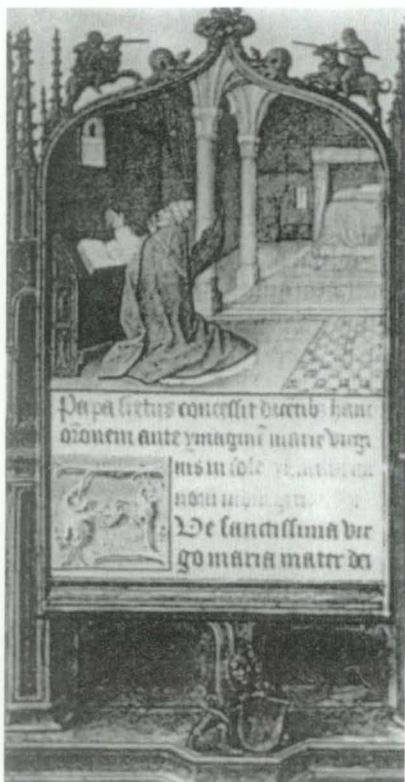 Papa sixtus concessit dicentib9 hanc
orōnem ante ymaginē marie virgi
nis in sole
Ve sanctissima vir
go maria mater dei